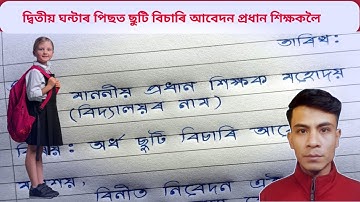 দ্বিতীয় ঘন্টাৰ পিছত ছুটি বিচাৰি আবেদন প্ৰধান শিক্ষকলৈ
তাৰিখ:
মাননীয় প্ৰধান শিক্ষক মহোদয়
(বিদ্যালয়ৰ নাম)
অৰ্ধ ছুটি বিচাৰি
বিনীত নিবেদন এই